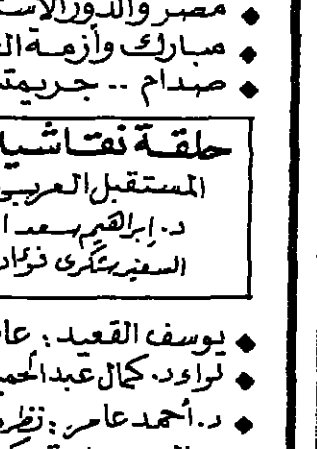 ◆ مصر والدور الاست
◆ مبارك وأزمة ال
◆ صدام .. جريمة
حلقة نقاشية
المستقبل العربي
د. إبراهيم سعد ا
السفير شكري فؤاد
◆ يوسف القعيد : عا
◆ لواء د. كمال عبد الحميد
◆ د. أحمد عامر : نظر